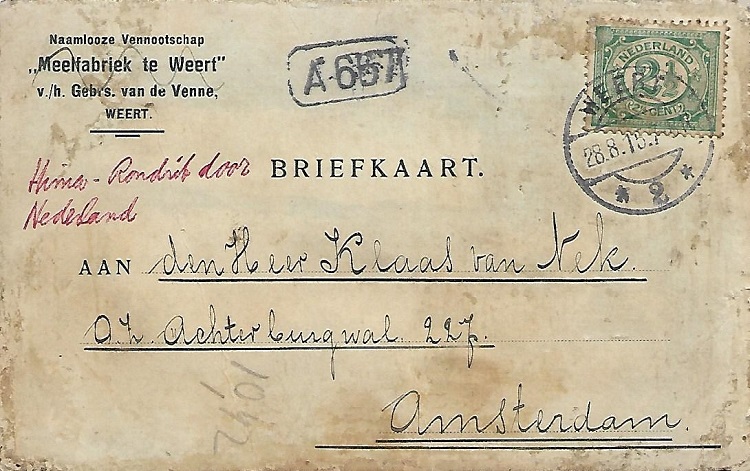 Naamlooze Vennootschap
„Meelfabriek te Weert"
v./h. Gebrs. van de Venne,
WEERT.
A-667
NEDERLAND
2½
2½ CENT 2½
WEERT
28.8.15.
* 2 *
Hima - Rondrit door
Nederland
BRIEFKAART.
AAN den Heer Klaas van Nek.
O.Z. Achterburgwal. 227.
Amsterdam.